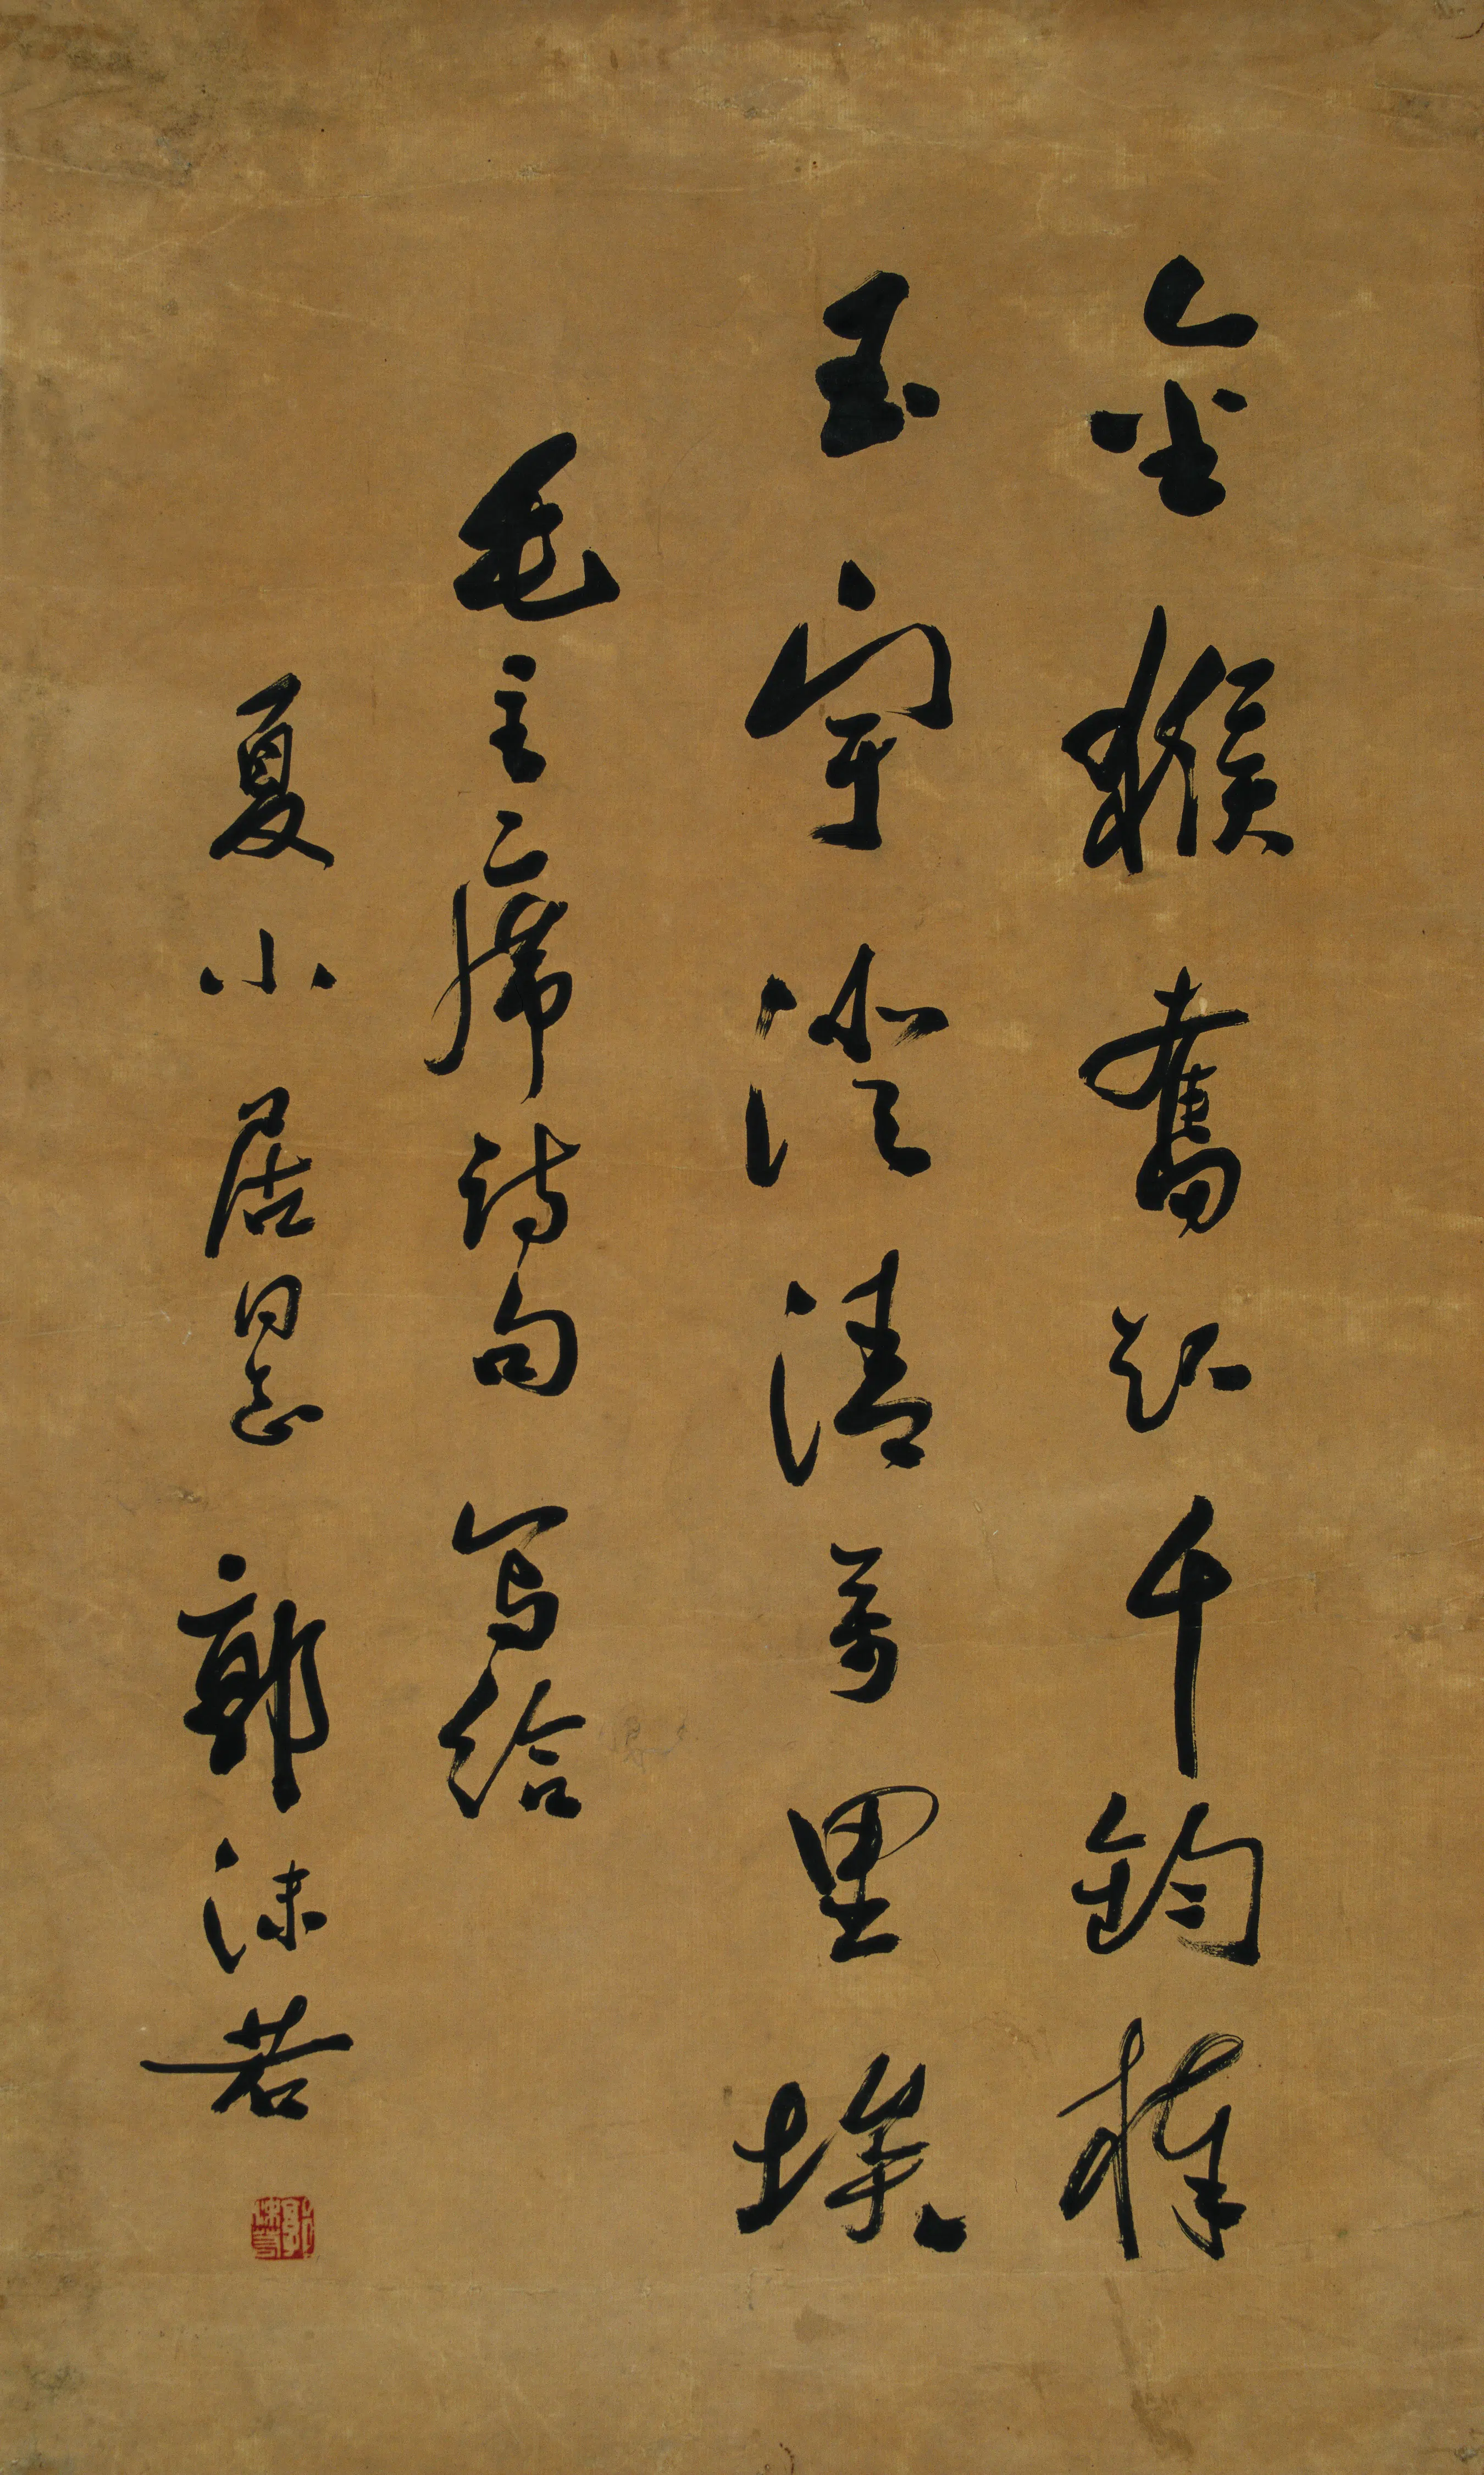 金猴奮起千鈞棒
玉宇澄清万里埃
毛主席詩句 写給
夏小居同志 郭沫若
郭沫若